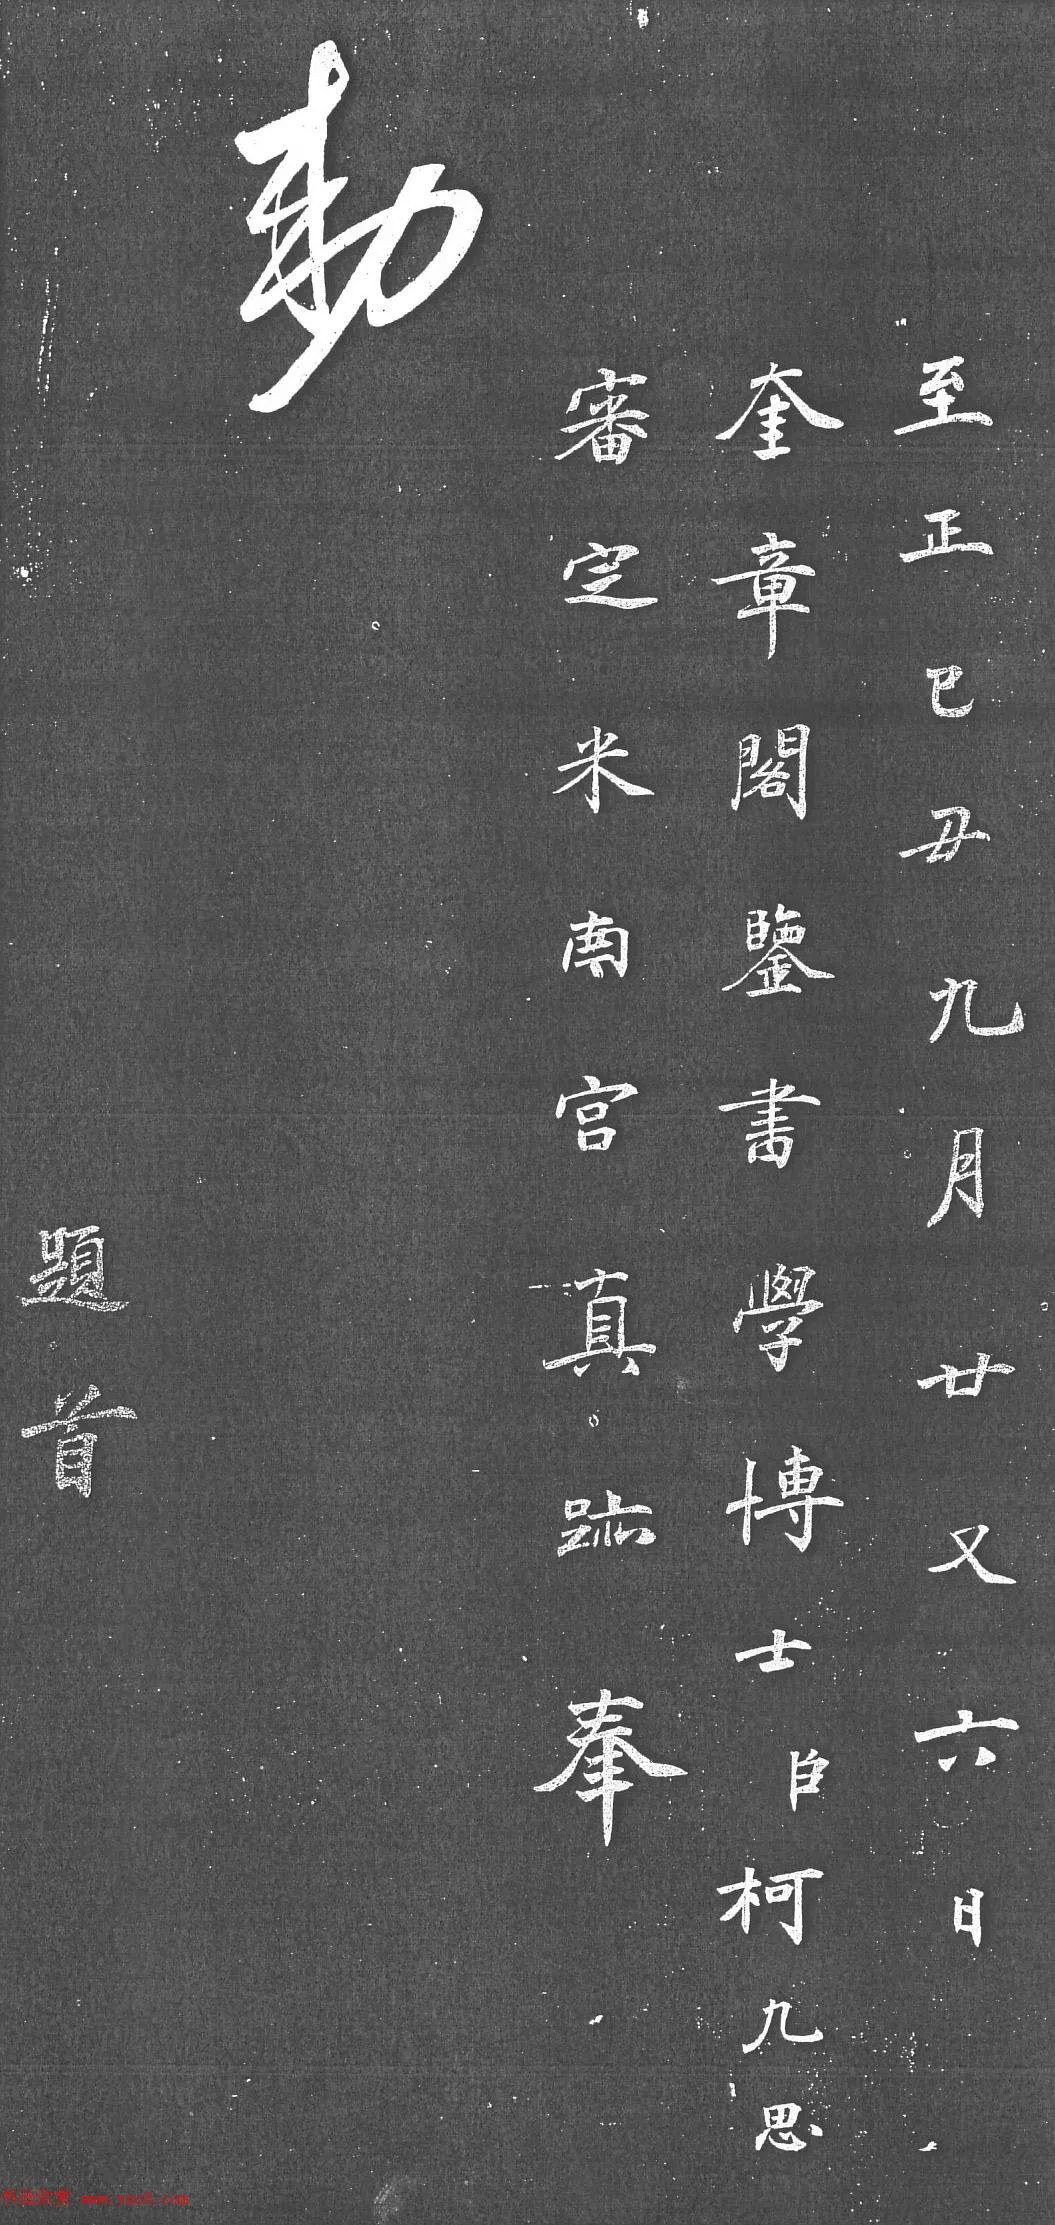 至正己丑九月廿又六日
奎章閣鑒書學博士臣柯九思
審定米南宮真跡奉
勅
題首
www.yac8.com